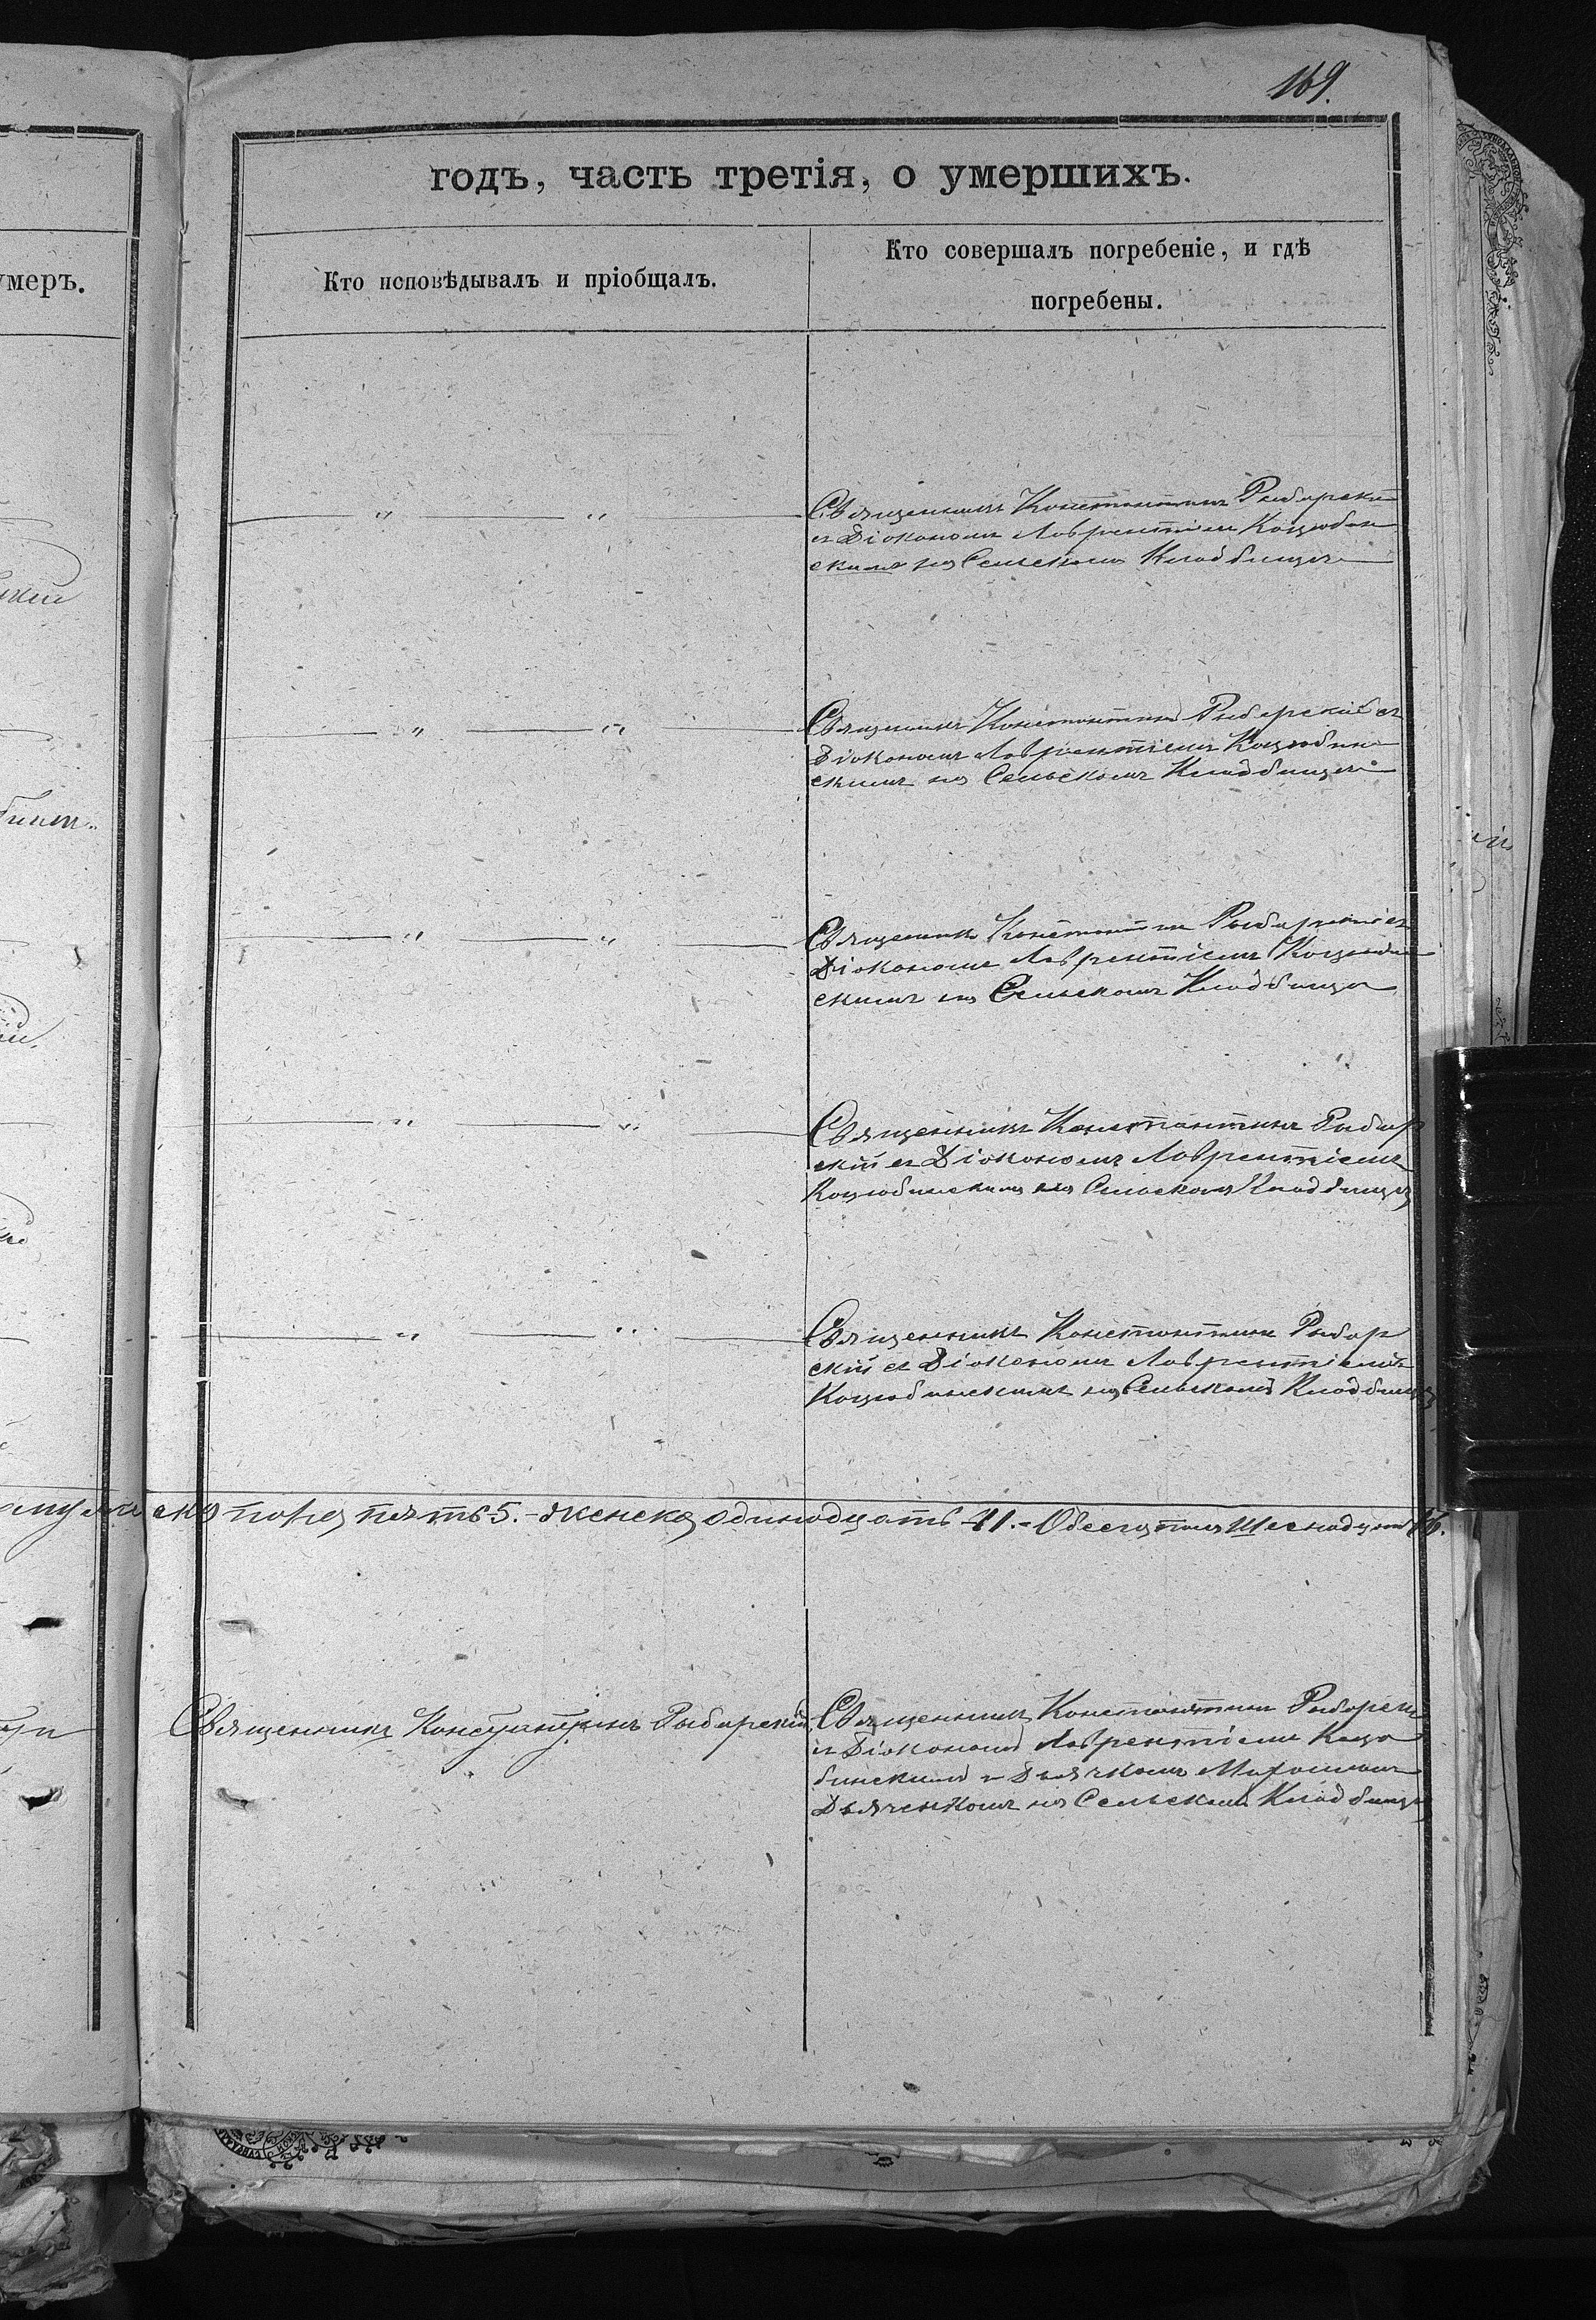 169.
годъ, часть третія, о умершихъ.
умеръ.
Кто исповѣдывалъ и пріобщалъ.
Кто совершалъ погребеніе, и гдѣ
погребены.
Священникъ Константинъ Рыбарскій
съ Діакономъ Лаврентіемъ Коцюбин
скимъ на Сельскомъ Кладбищѣ
Священникъ Константинъ Рыбарскій съ
Діакономъ Лаврентіемъ Коцюбин
скимъ на Сельскомъ Кладбищѣ
Священникъ Константинъ Рыбарскій съ
Діакономъ Лаврентіемъ Коцюбин
скимъ на Сельскомъ Кладбищѣ
Священникъ Константинъ Рыбар
скій съ Діакономъ Лаврентіемъ
Коцюбинскимъ на Сельскомъ Кладбищѣ
Священникъ Константинъ Рыбар
скій съ Діакономъ Лаврентіемъ
Коцюбинскимъ на Сельскомъ Кладбищѣ
пола пять 5. - женска одинадцать 11. - Обоего пола Шеснадцать 16.
Священникъ Константинъ Рыбарскій
Священникъ Константинъ Рыбарскі
съ Діакономъ Лаврентіемъ Коцю
бинскимъ и Дьячкомъ
Дьяченкомъ на Сельскомъ Кладбищѣ